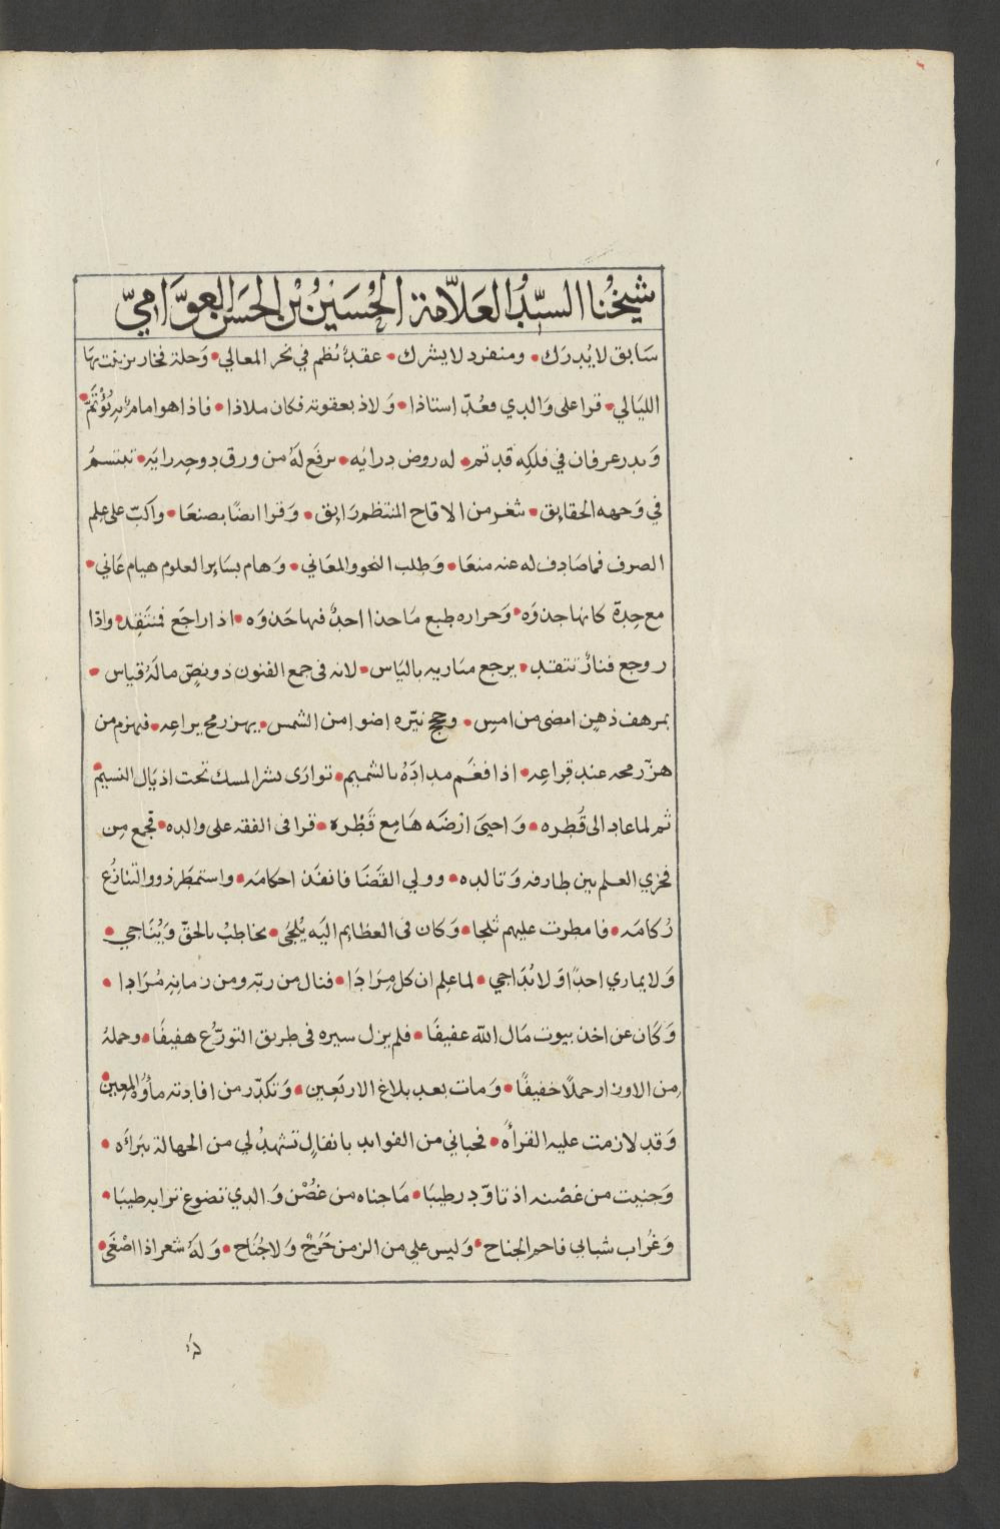 شيخُنا السيّدُ العَلاّمة الحُسَينُ بْن الحسَن العوَّامِيّ
سَابق لا يُدرَك • ومنفرد لا يشرك • عقدٌ نُظم في نحر المعالي • وَحلة فخار تزينت بها
الليَالي • قرا على وَالدي فعُدّ استاذا • وَلاذ بعقوته فكان ملاذا • فاذا هو امام به يُؤْتَمّ •
وَبدر عرفان في فلكه قد تم • له روض درايه • يرفع لهُ من ورق دوحه رايه • تبتسمُ
في وَجهه الحقايق • ثغر من الاقاح المنتظم رَايق • وَقرا ايضًا بصنعَا • واكبّ على علم
الصرف فما صَادف له عنه منعَا • وَطلب النحو والمعَاني • وَهام بسَاير العلوم هيام عَاني •
مع حِدة كانها جذوَه • وَحراره طبع مَا حذا احدٌ فيها حَذوَه • اذا راجَع فمنتَقِد • واذا
روجع فنارٌ تتقد • يرجع مباريه باليَاس • لانه في جمع الفنون ذو نصّ ما لَهُ قياس •
بمرهف ذهن امضى من امس • وحجج نيّره اضوا من الشمس • يهز رمح يراعِه • فيهزم من
هزّ رمحه عند قِراعِه • اذا فغَم مدادَهُ بالشميم • توارَى نشر المسك تحت اذيَال النسيم •
ثم لما عاد الى قُطرِه • وَاحيَى ارْضَه هَامِع قَطْره • قرا في الفقه على والده • فجمع من
فخري العلم بين طارفه وَتالده • وولي القَضَا فانفَذ احكامَه • واستمطَر ذووا التنازُع
رُكامَه • فامطرت عليهم ثلجا • وَكان في العظايم اليَه يُلجَى • يخاطِبُ بالحقّ وَيُنَاجي •
وَلا يماري احدًا وَلا يُدَاجي • لما علم ان كل مِرَا دَا • فنال من ربّه ومن زمانِهِ مُرَادا •
وَكَان عن اخذ بيوت مَال اللّه عفيفَا • فلم يزل سيره في طريق التورّع هفيفَا • وحملهُ
من الاوزار حملًا خفيفًا • وَمات بعد بلاغ الاربَعِين • وَتكدّر من افادته ماؤُهُ المعِين •
وَقد لازمت عليه القراءَه • فحباني من الفوايد بانفالٍ تشهدُ لي من الجهالة ببَراءَه •
وَجنيت من غصْنه اذ تاوّد رطيبَا • مَا جناه من غُصْن وَالدي تضوع ترابه طيبَا •
وَغُراب شبابي فاحم الجناح • وَليس علي من الزمن حَرجٌ وَلا جُنَاح • وَلَهُ شعر اذا اصْغَى •